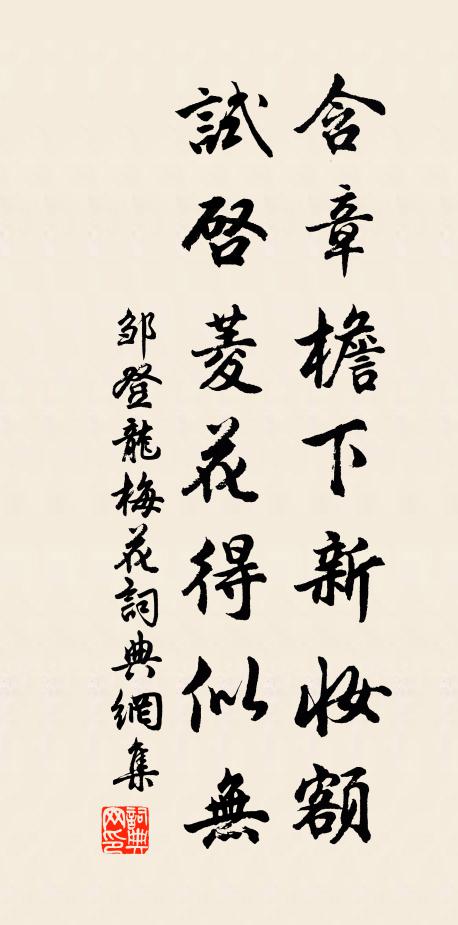 含章檐下新妝額
試啓菱花得似無
鄒登龍梅花詞典網集
詞典網印